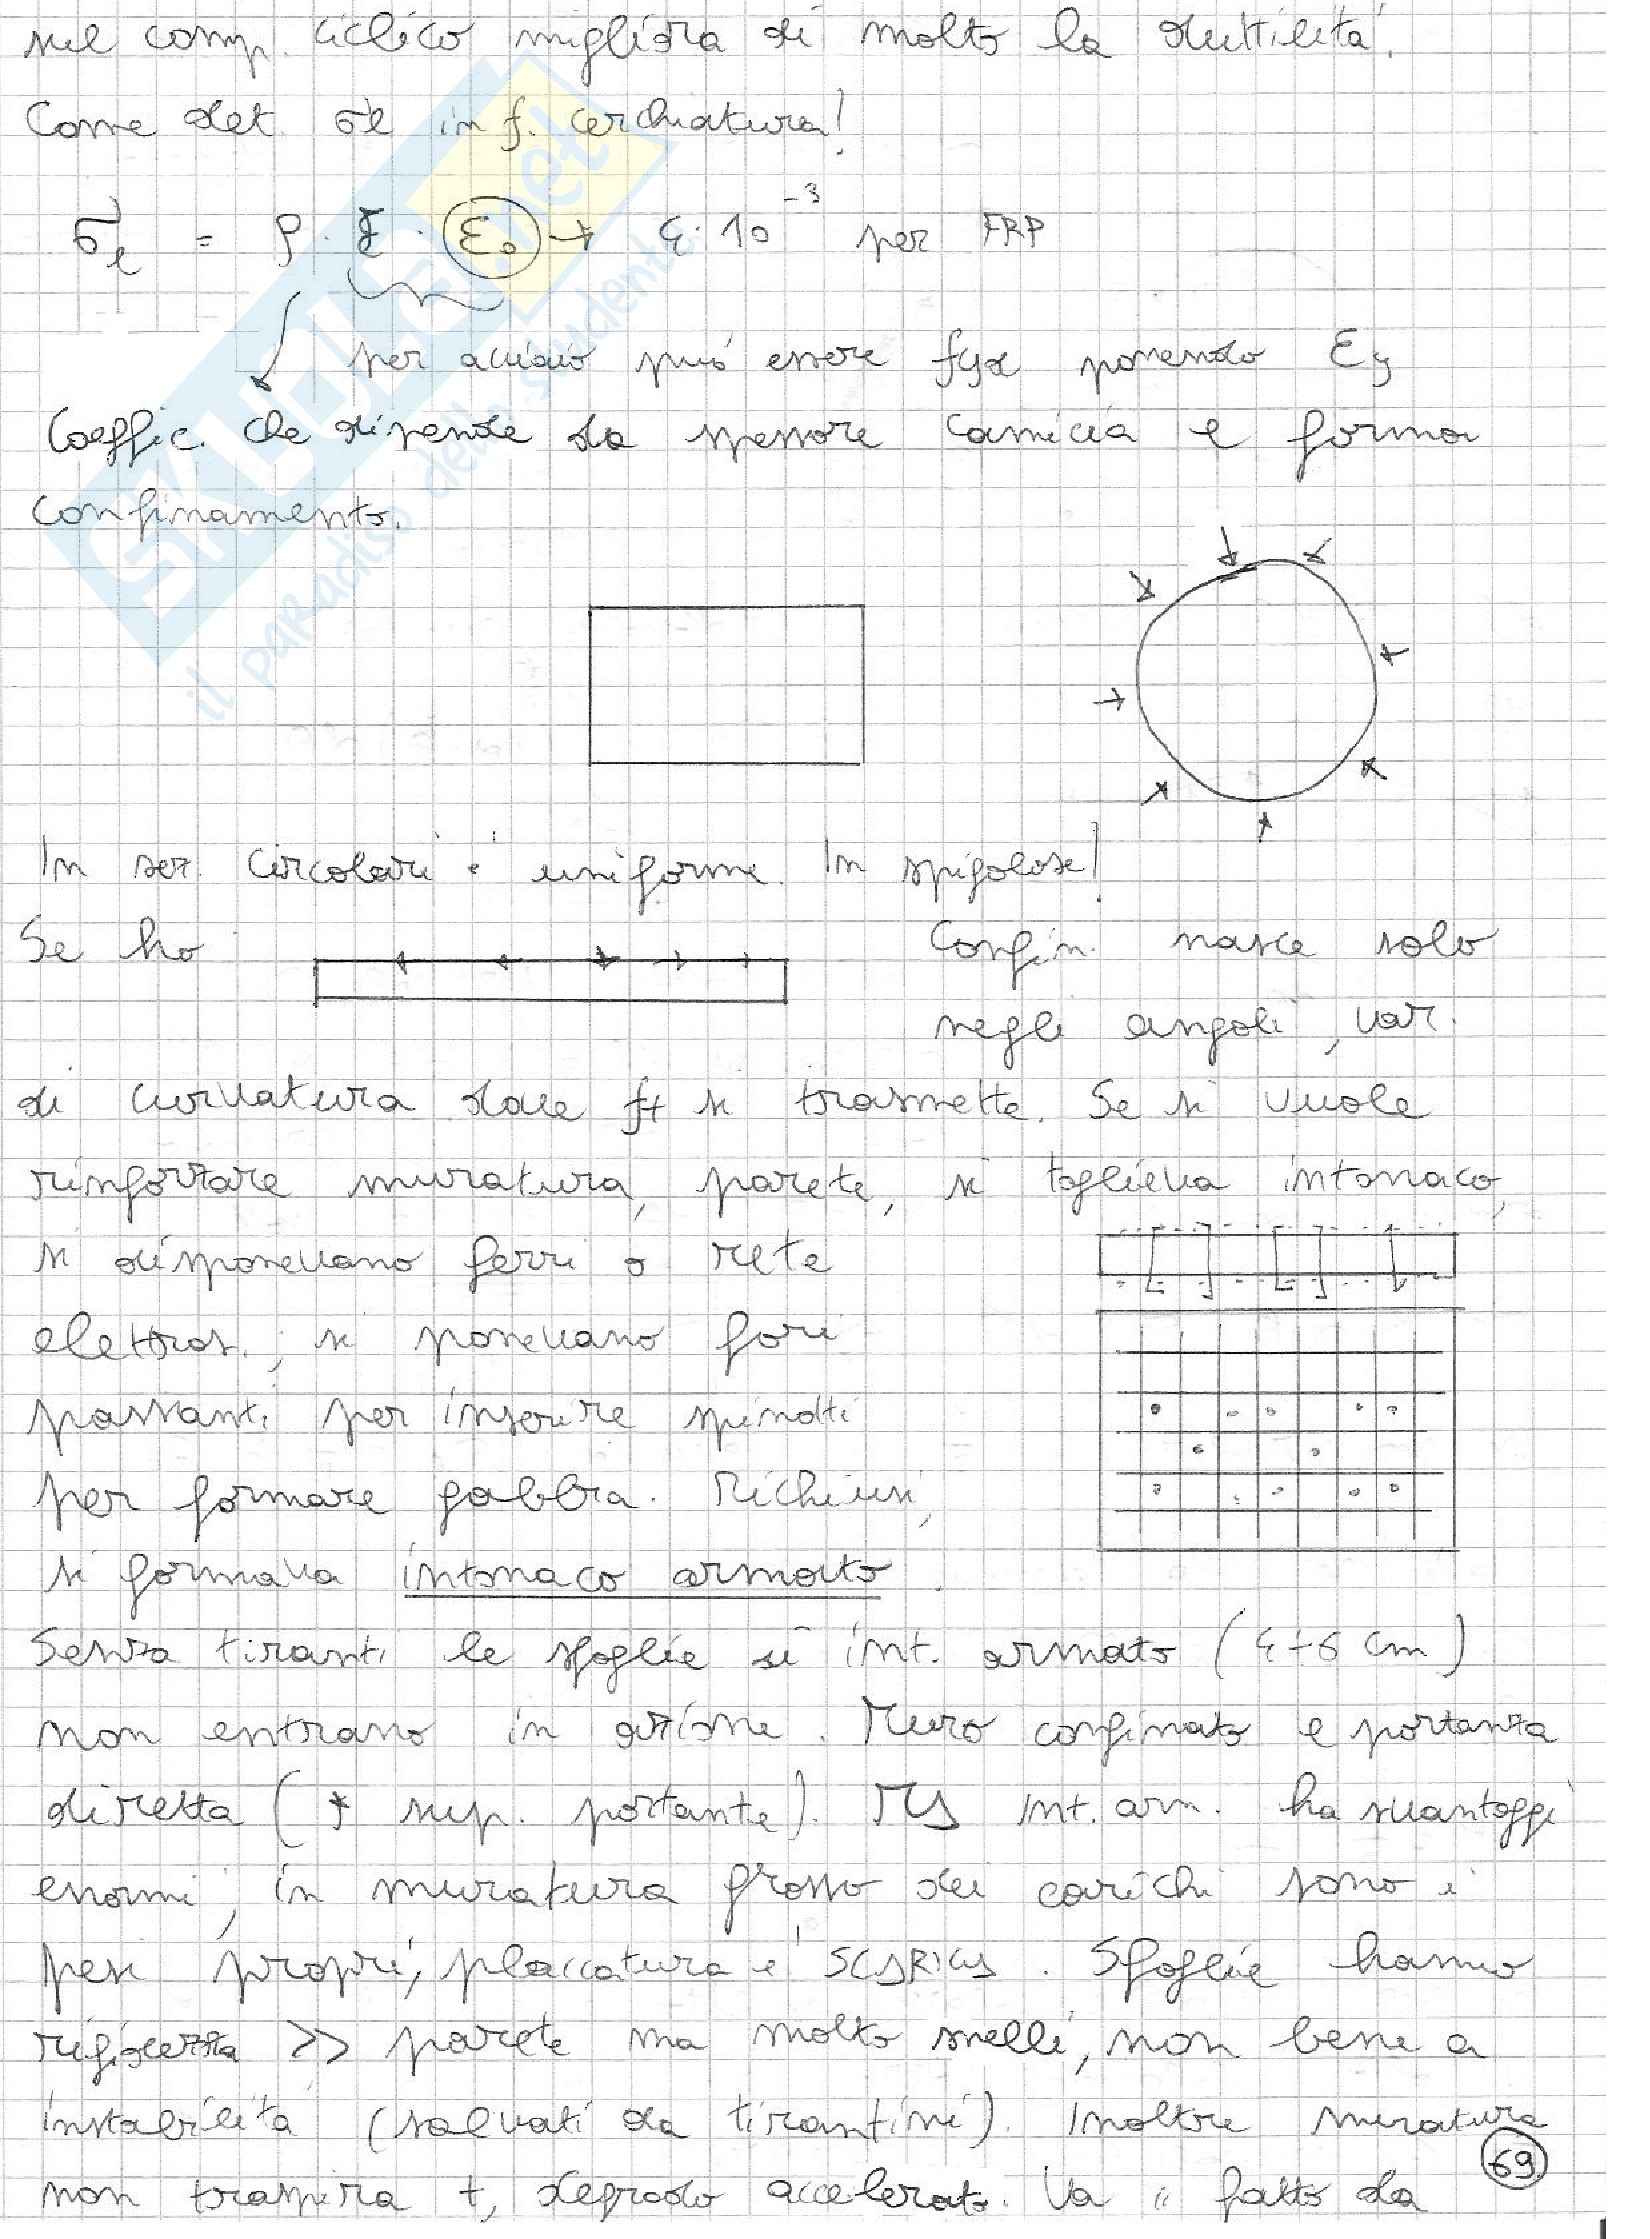 nel comp. ciclico migliora di molto la duttilità.
Come det. σl in f. cerchiatura!
σl = ρ · E · ε0 → 4 · 10^-3 per FRP
per acciaio può essere fyd ponendo Ey
Coeffic. che dipende da spessore camicia e forma
confinamento.
In sez. circolari è uniforme. In spigolose!
Se ho
Confin. nasce solo
negli angoli, var.
di curvatura dove ft si trasmette. Se si vuole
rinforzare muratura, parete, si toglieva intonaco,
si disponevano ferri o rete
elettros.; si ponevano fori
passanti per inserire spinotti
per formare gabbia. Richiusi,
si formava intonaco armato.
Senza tiranti le sfoglie di int. armato (4÷6 cm)
non entrano in azione. Muro confinato e portanza
diretta (+ sup. portante). MS int. arm. ha svantaggi
enormi, in muratura grosso dei carichi sono i
pesi propri, placcatura è SCARICA. Sfoglie hanno
rigidezza >> parete ma molto snelli, non bene a
instabilità (salvati da tirantini). Inoltre muratura
non traspira +, degrado accelerato. Va " fatto da
69
SKUOLA.net
il paradiso dello studente